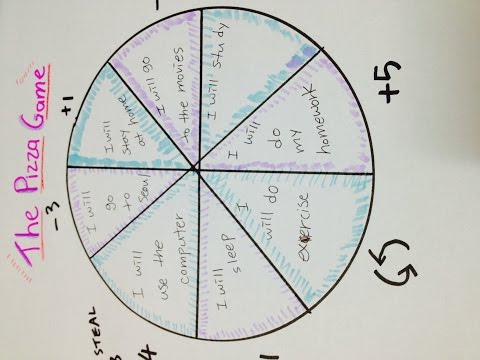 The Pizza Game
+1
I will go
to the movies
I will study
+5
I will
do
my
homework
I
will do
exercise
I will
sleep
1
I will
use the
computer
STEAL
4
-3
I will
go
to
seoul
I will
stay
at home